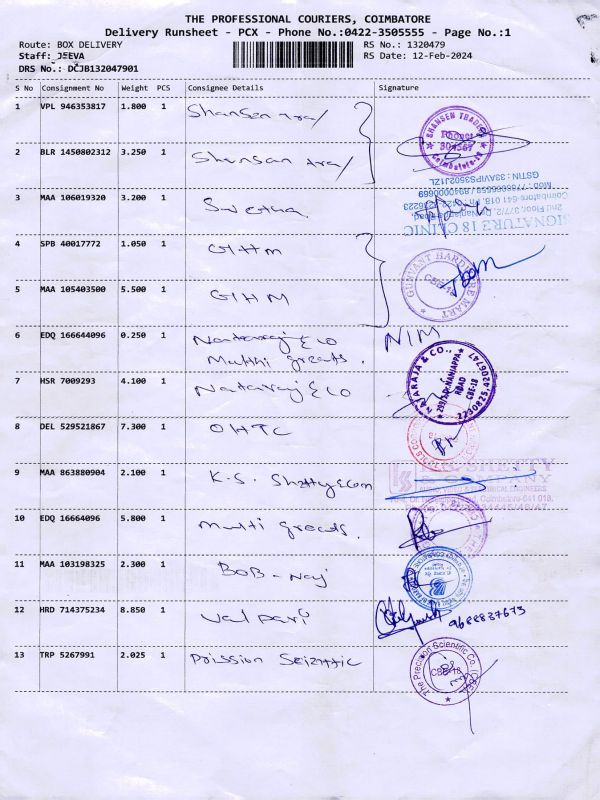 THE PROFESSIONAL COURIERS, COIMBATORE
Delivery Runsheet - PCX - Phone No.:0422-3505555 - Page No.:1
Route: BOX DELIVERY RS No.: 1320479
Staff: JEEVA RS Date: 12-Feb-2024
DRS No.: DCJB132047901
S No Consignment No Weight PCS Consignee Details Signature
1 VPL 946353817 1.800 1 Shansen tra/
SHANSEN TRADERS
Phone:
304567
Coimbatore-18
2 BLR 1450802312 3.250 1 Shansan tra/
3 MAA 106019320 3.200 1 Swetha.
SIGNATURE 18 CLINIC
GSTIN : 33AVIPS3502J1ZL
4 SPB 40017772 1.050 1 GIHM
GUNVANT HARDWARE MART
CBE-18
5 MAA 105403500 5.500 1 GIHM
6 EDQ 166644096 0.250 1 Nataraj & co
Multhi greats.
NIM
7 HSR 7009293 4.100 1 Nataraj & co
NATARAJA & CO.,
ROAD
CBE-18
8 DEL 529521867 7.300 1 OHTC
9 MAA 863880904 2.100 1 K.S. Shetty & com
K.S. SHETTY
& COMPANY
Coimbatore-641 018.
10 EDQ 16664096 5.800 1 Multi greats.
11 MAA 103198325 2.300 1 BOB-Naj
12 HRD 714375234 8.850 1 Valpari
9688837673
13 TRP 5267991 2.025 1 Poission Seizntic
The Precision Scientific Co.
CBE-18